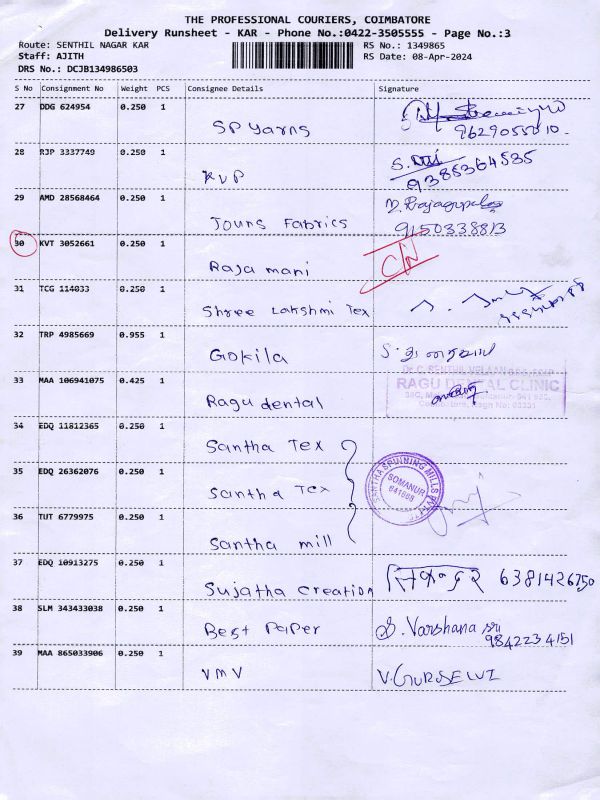 THE PROFESSIONAL COURIERS, COIMBATORE
Delivery Runsheet - KAR - Phone No.:0422-3505555 - Page No.:3
Route: SENTHIL NAGAR KAR
RS No.: 1349865
Staff: AJITH
RS Date: 08-Apr-2024
DRS No.: DCJB134986503
S No Consignment No Weight PCS Consignee Details Signature
27 DDG 624954 0.250 1
SP Yarns
9629055010.
28 RJP 3337749 0.250 1
KVP
9385364535
29 AMD 28568464 0.250 1
Touns Fabrics
Rajagopal
9150338813
30 KVT 3052661 0.250 1
Raja mani
C/N
31 TCG 114033 0.250 1
Shree Lakshmi Tex
32 TRP 4985669 0.955 1
Gokila
33 MAA 106941075 0.425 1
Ragu dental
Dr. C. SENTHIL VELAAN
RAGU DENTAL CLINIC
34 EDQ 11812365 0.250 1
Santha Tex
35 EDQ 26362076 0.250 1
Santha Tex
SANTHA SPINNING MILLS PVT LTD
SOMANUR
641668
36 TUT 6779975 0.250 1
Santha mill
37 EDQ 10913275 0.250 1
Sujatha Creation
6381426750
38 SLM 343433038 0.250 1
Best Paper
S. Varshana sri
9842234151
39 MAA 865033906 0.250 1
VMV
V. GURSELVI